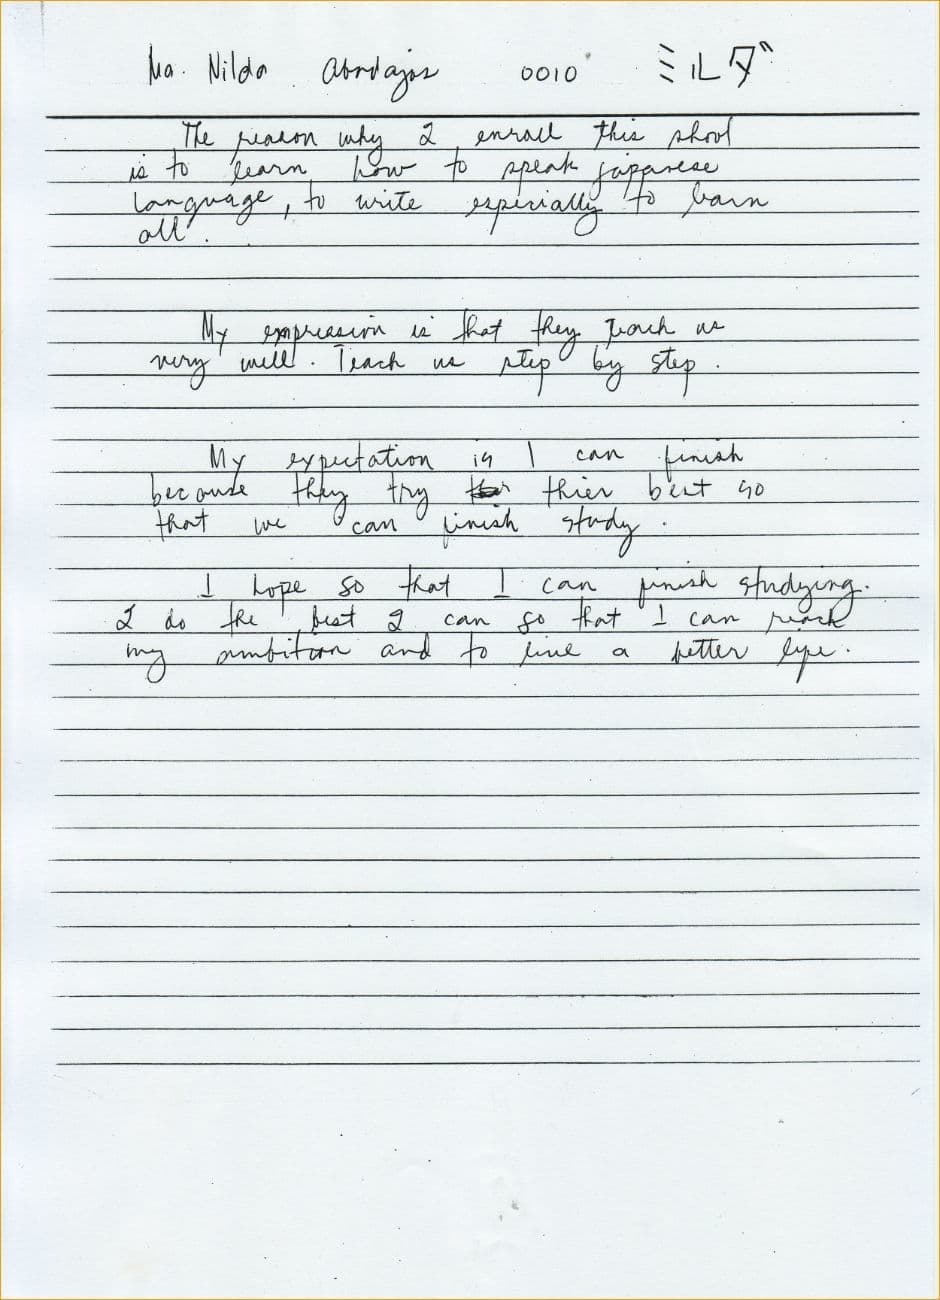 Ma. Nilda Abordajos 0010 ミルダ
The reason why I enroll this shool
is to learn how to speak japanese
language, to write especially to learn
all.
My expression is that they teach us
very well. Teach us step by step.
My expectation is I can finish
because they try thier best so
that we can finish study.
I hope so that I can finish studying.
I do the best I can so that I can reach
my ambition and to live a better life.